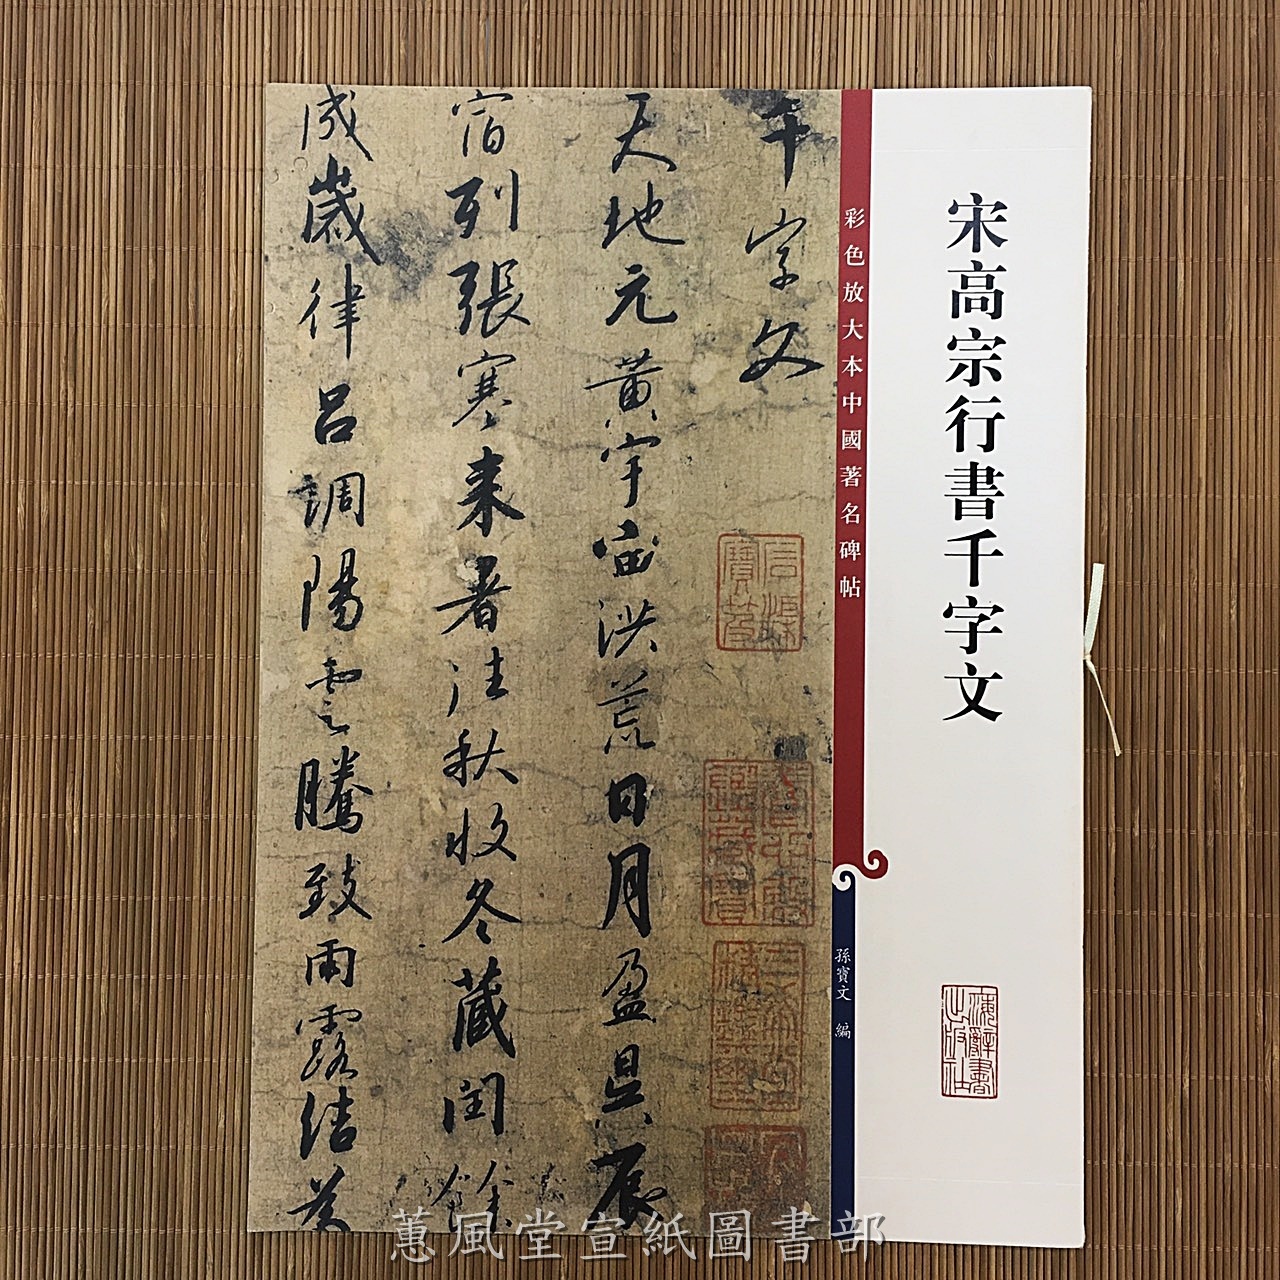 宋高宗行書千字文
彩色放大本中國著名碑帖
孫寶文 編
海辭書出版社
千字文
天地元黃宇宙洪荒日月盈昃辰
宿列張寒来暑往秋收冬藏閏餘
成歲律呂調陽雲騰致雨露結為
蕙風堂宣紙圖書部